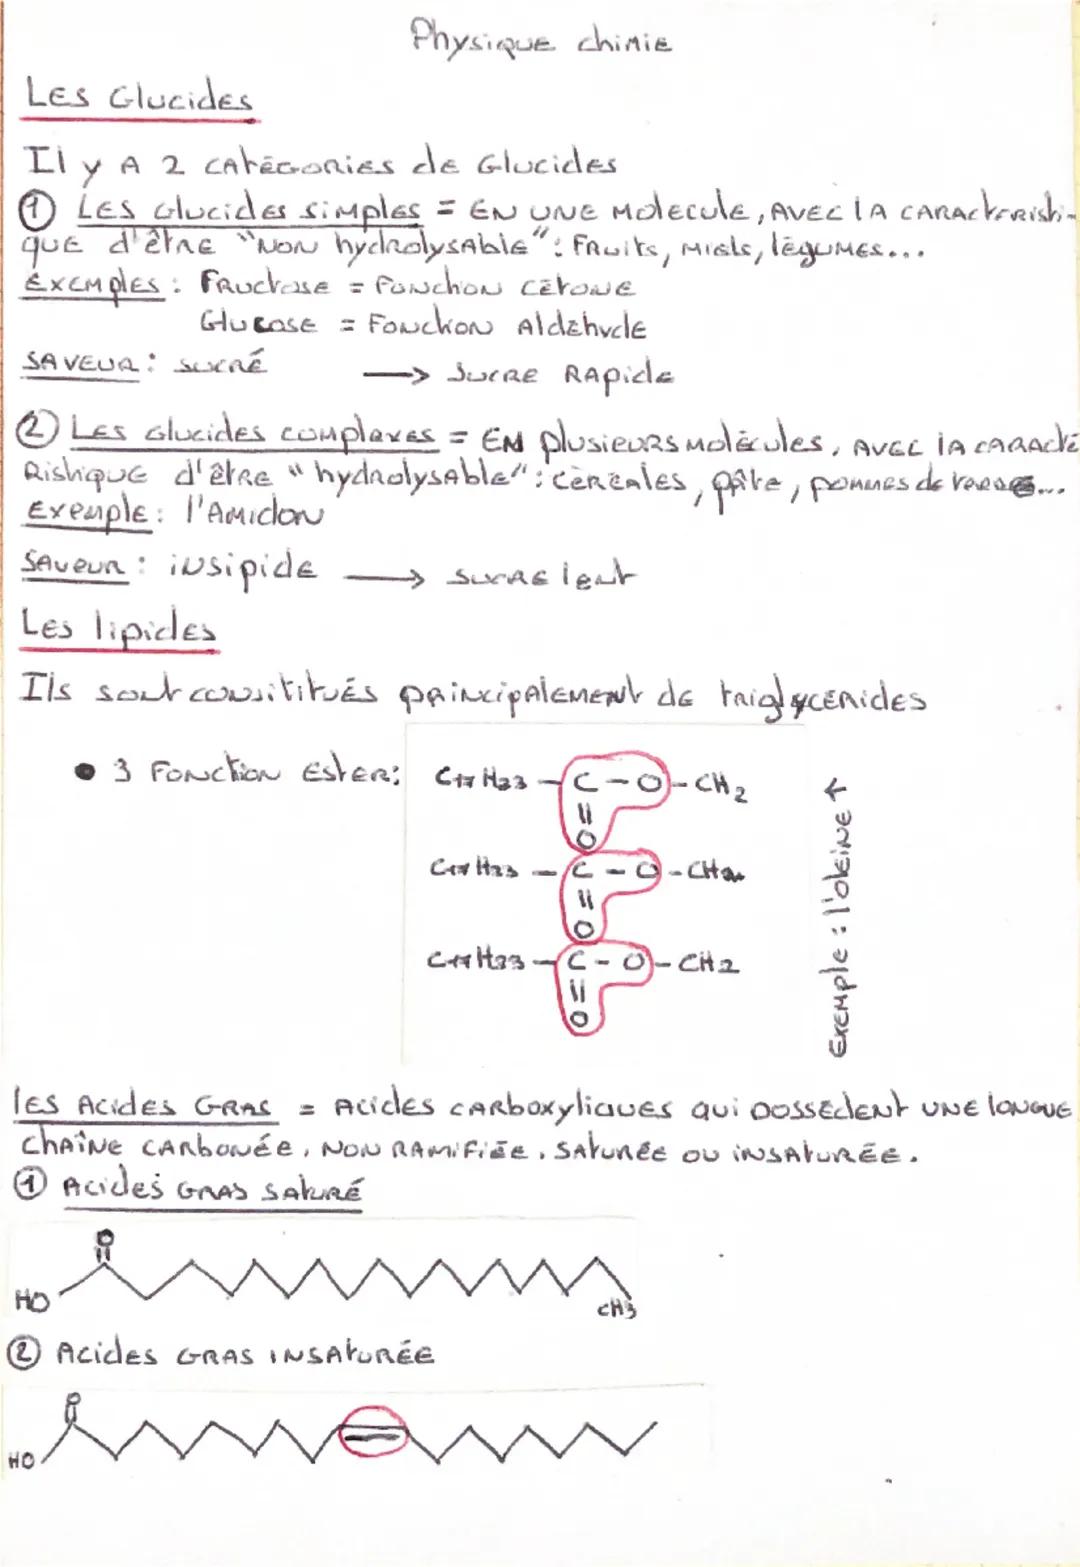 Physique chimie
Les Glucides
Il y A 2 catégories de Glucides
① Les Glucides simples = En une molécule, avec la caractéristi-
que d'être "non hydrolysable" : Fruits, miels, légumes...
Exemples : Fructose = Fonction cétone
Glucose = Fonction Aldéhyde
Saveur : sucré → sucre rapide
② Les Glucides complexes = En plusieurs molécules, avec la caracté
ristique d'être "hydrolysable" : céréales, pâte, pommes de terres...
Exemple : l'Amidon
Saveur : insipide → sucre lent
Les lipides
Ils sont consititués principalement de triglycérides
• 3 Fonction Ester:
C17 H33 - C - O - CH2
=
O
C17 H33 - C - O - CH
=
O
C17 H33 - C - O - CH2
=
O
Exemple : l'oléine ↑
les Acides Gras = Acides carboxyliques qui possèdent une longue
chaîne carbonée, non ramifiée, saturée ou insaturée.
① Acides Gras saturé
O
HO
CH3
② Acides Gras insaturée
O
HO